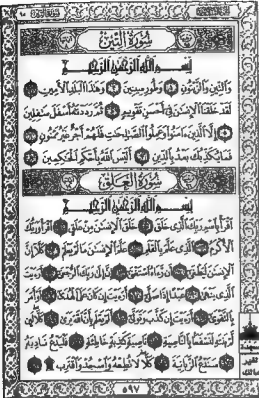 سُورَةُ التِّينِ
بِسْمِ اللَّهِ الرَّحْمَٰنِ الرَّحِيمِ
وَالتِّينِ وَالزَّيْتُونِ ١ وَطُورِ سِينِينَ ٢ وَهَٰذَا الْبَلَدِ الْأَمِينِ ٣
لَقَدْ خَلَقْنَا الْإِنسَٰنَ فِي أَحْسَنِ تَقْوِيمٍ ٤ ثُمَّ رَدَدْنَٰهُ أَسْفَلَ سَٰفِلِينَ
٥ إِلَّا الَّذِينَ ءَامَنُوا وَعَمِلُوا الصَّٰلِحَٰتِ فَلَهُمْ أَجْرٌ غَيْرُ مَمْنُونٍ ٦
فَمَا يُكَذِّبُكَ بَعْدُ بِالدِّينِ ٧ أَلَيْسَ اللَّهُ بِأَحْكَمِ الْحَٰكِمِينَ ٨
سُورَةُ الْعَلَقِ
بِسْمِ اللَّهِ الرَّحْمَٰنِ الرَّحِيمِ
اقْرَأْ بِاسْمِ رَبِّكَ الَّذِي خَلَقَ ١ خَلَقَ الْإِنسَٰنَ مِنْ عَلَقٍ ٢ اقْرَأْ وَرَبُّكَ
الْأَكْرَمُ ٣ الَّذِي عَلَّمَ بِالْقَلَمِ ٤ عَلَّمَ الْإِنسَٰنَ مَا لَمْ يَعْلَمْ ٥ كَلَّا إِنَّ
الْإِنسَٰنَ لَيَطْغَىٰ ٦ أَن رَّءَاهُ اسْتَغْنَىٰ ٧ إِنَّ إِلَىٰ رَبِّكَ الرُّجْعَىٰ ٨ أَرَءَيْتَ
الَّذِي يَنْهَىٰ ٩ عَبْدًا إِذَا صَلَّىٰ ١٠ أَرَءَيْتَ إِن كَانَ عَلَى الْهُدَىٰ ١١ أَوْ أَمَرَ
بِالتَّقْوَىٰ ١٢ أَرَءَيْتَ إِن كَذَّبَ وَتَوَلَّىٰ ١٣ أَلَمْ يَعْلَم بِأَنَّ اللَّهَ يَرَىٰ ١٤ كَلَّا لَئِن
لَّمْ يَنتَهِ لَنَسْفَعًا بِالنَّاصِيَةِ ١٥ نَاصِيَةٍ كَٰذِبَةٍ خَاطِئَةٍ ١٦ فَلْيَدْعُ نَادِيَهُ
١٧ سَنَدْعُ الزَّبَانِيَةَ ١٨ كَلَّا لَا تُطِعْهُ وَاسْجُدْ وَاقْتَرِب ۩ ١٩
٥٩٧